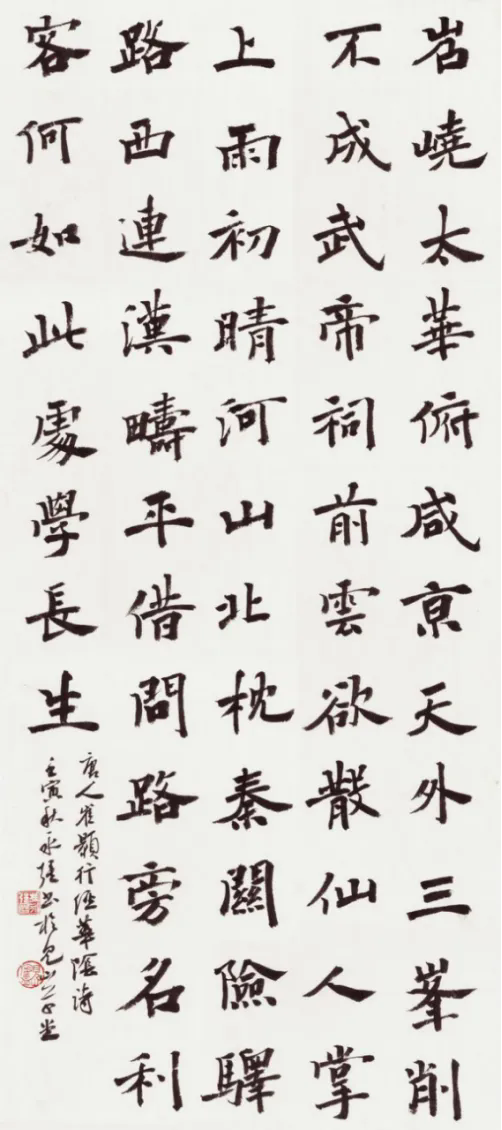 岧嶢太華俯咸京天外三峯削
不成武帝祠前雲欲散仙人掌
上雨初晴河山北枕秦關險驛
路西連漢疇平借問路旁名利
客何如此處學長生
唐人崔顥行經華陰詩
壬寅秋永強书於見山草堂